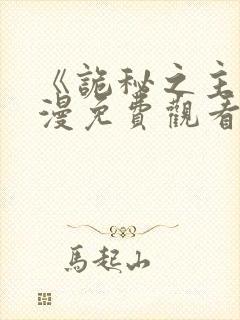 《詭秘之主
漫免費觀看
馬起山